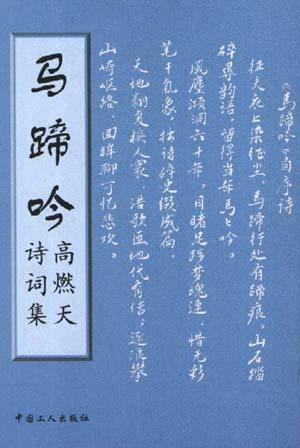 马蹄吟
高燃天
诗词集
中国工人出版社
《馬蹄吟》自序诗
征夫衣上染征尘，马蹄行处有蹄痕。山石踏
碎寻韵语，留得当年马上吟。
风尘澒洞六十年，目睹足踏梦魂连，惜无彩
笔干气象，拙诗碎史缀成篇。
天地翻复换人寰，歌地代有传，逐浪攀
山崎岖路，回眸聊可忆悲欢。